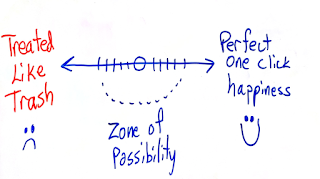 Treated
Like
Trash
Perfect
one click
happiness
Zone of
Passibility